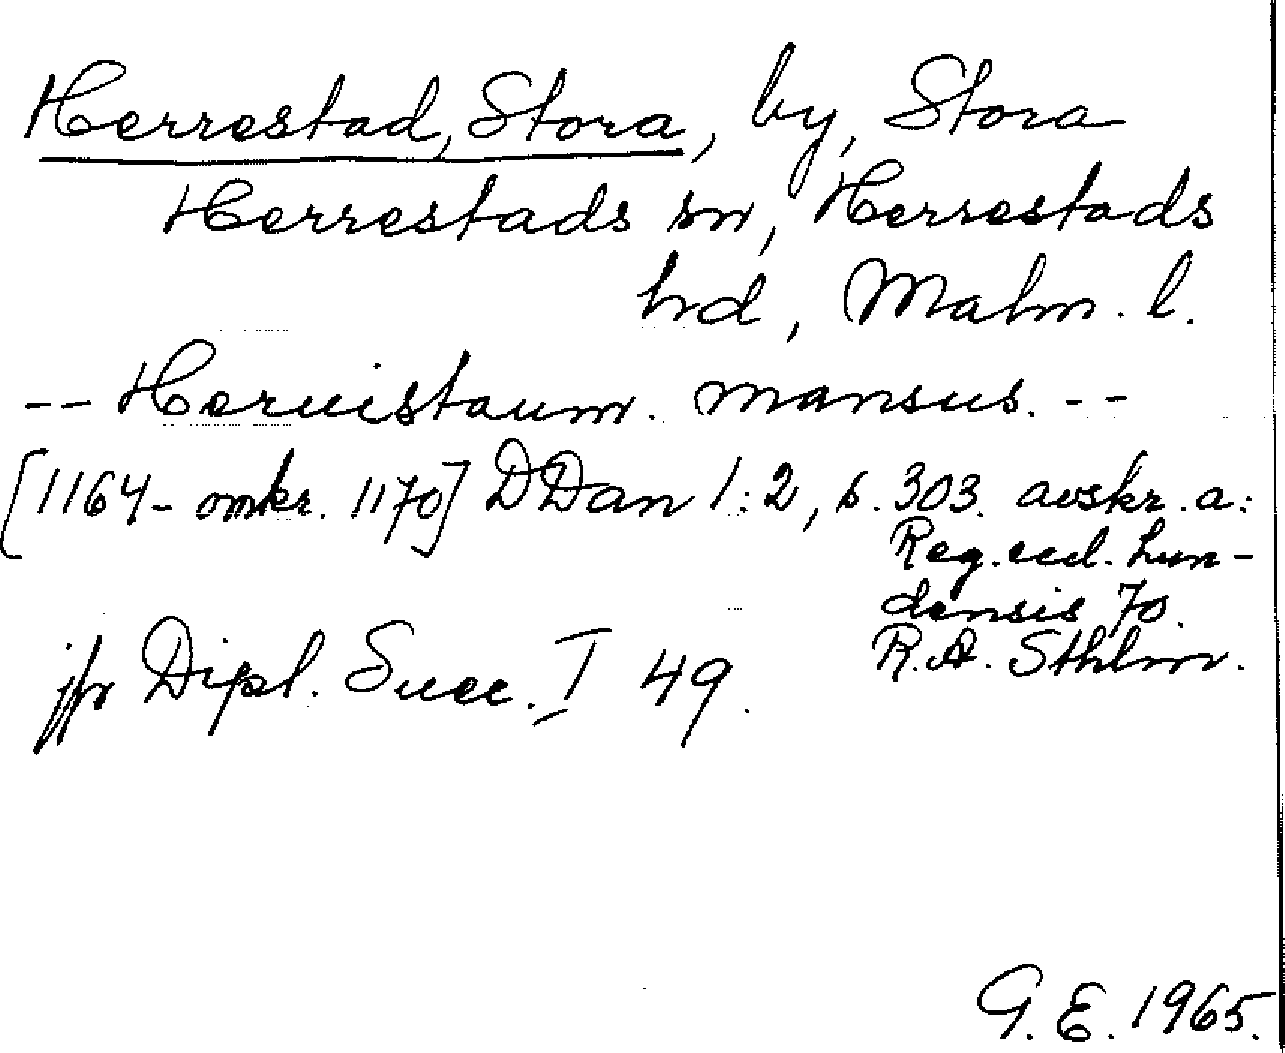 Herrestad, Stora, by, Stora
Herrestads sn, Herrestads
hrd, Malm. l.
-- Heruistaum. mansus. --
[1164- omkr. 1170] DDan 1:2, s. 303. avskr. a:
Reg. eccl. Lun-
densis 70.
R.A. Sthlm.
jfr Dipl. Suec. I 49.
G. E. 1965.